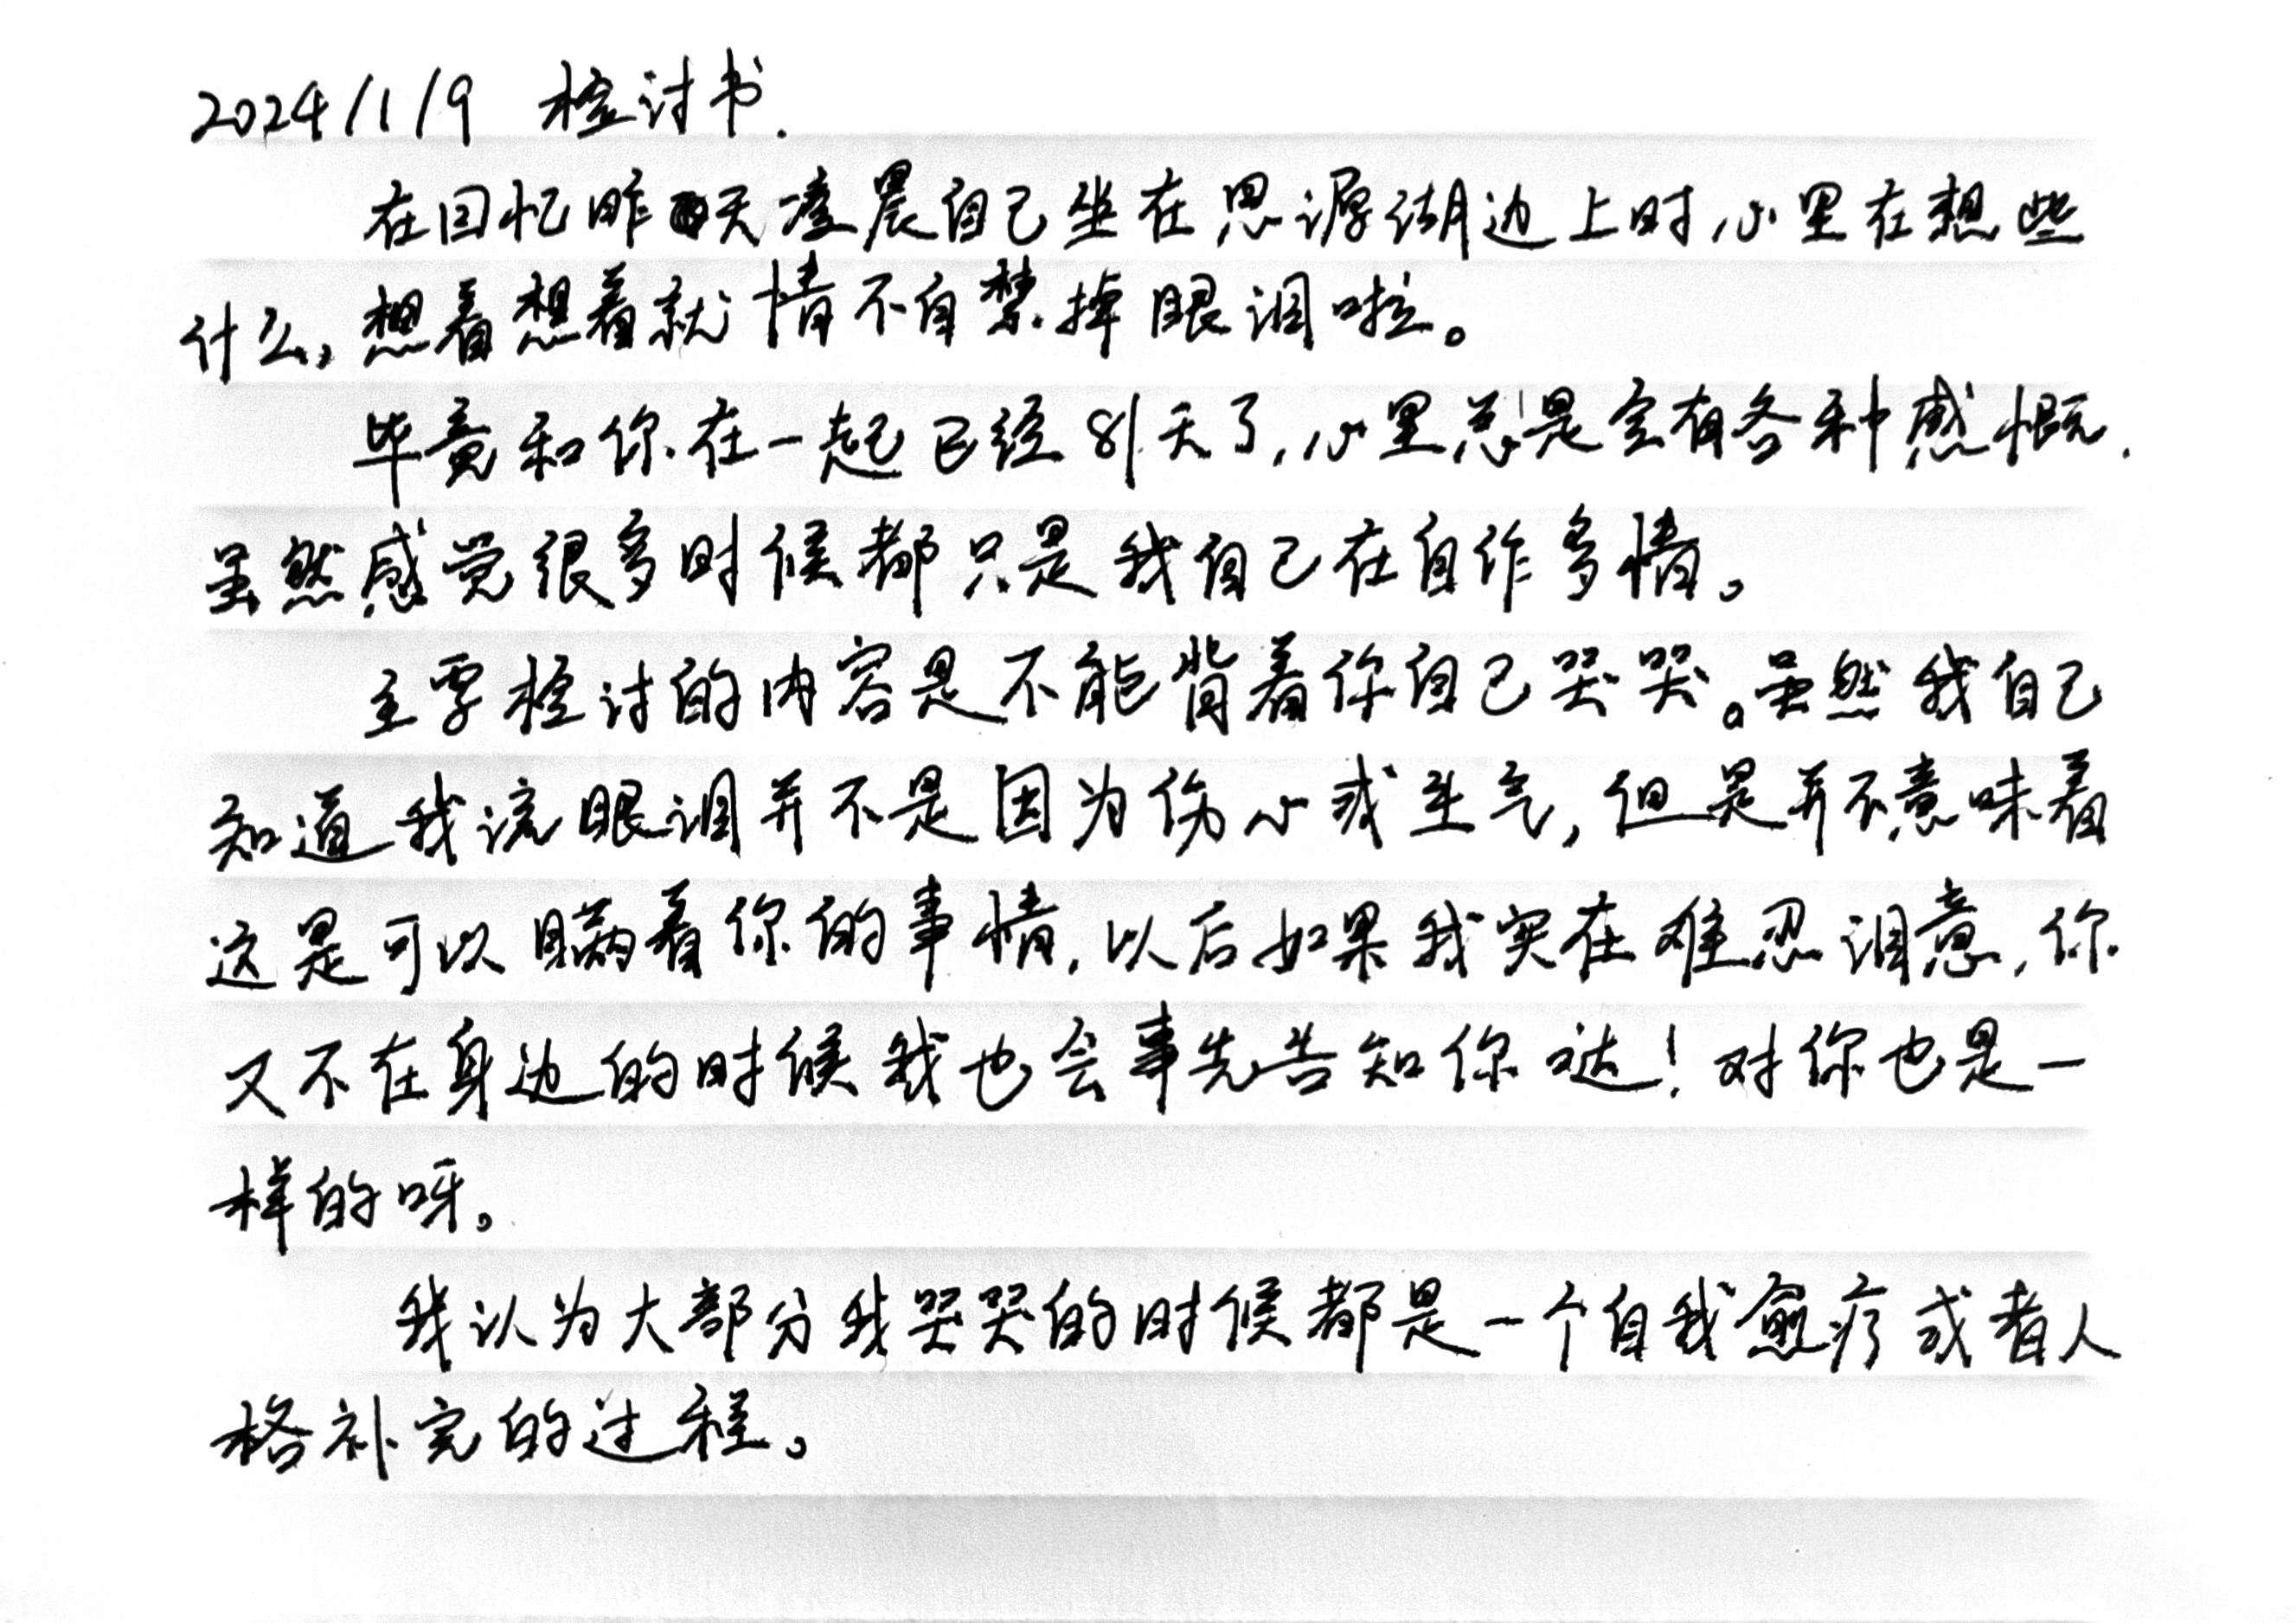 2024/1/9 检讨书.
在回忆昨天凌晨自己坐在思源湖边上时,心里在想些
什么,想着想着就情不自禁掉眼泪啦。
毕竟和你在一起已经81天了,心里总是会有各种感慨.
虽然感觉很多时候都只是我自己在自作多情。
主要检讨的内容是不能背着你自己哭哭。虽然我自己
知道我流眼泪并不是因为伤心或生气,但是并不意味着
这是可以瞒着你的事情,以后如果我实在难忍泪意,你
又不在身边的时候我也会事先告知你哒!对你也是一
样的呀。
我认为大部分我哭哭的时候都是一个自我愈疗或者人
格补完的过程。